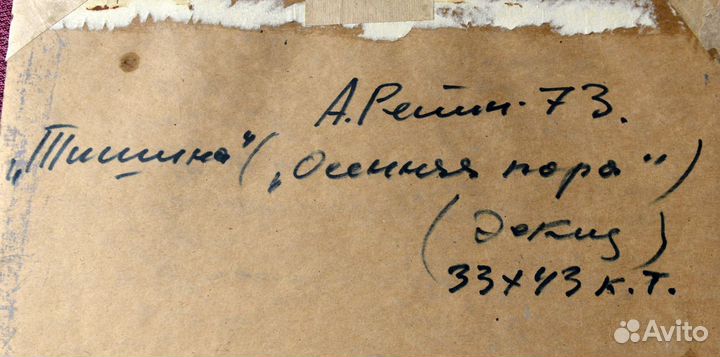 А. Репин - 73.
„Тишина" („Осенняя пора")
(Эскиз)
33х43 к.т.
Avito